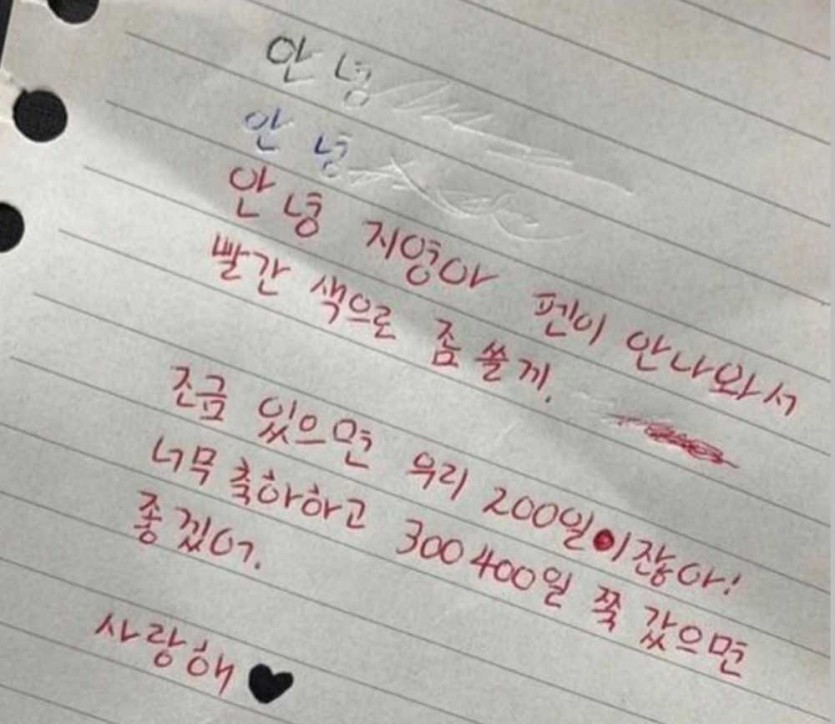 안녕
안녕
안녕 지영아 펜이 안나와서
빨간 색으로 좀 쓸께.
조금 있으면 우리 200일이잖아!
너무 축하하고 300 400일 쭉 갔으면
좋겠어.
사랑해 ♥